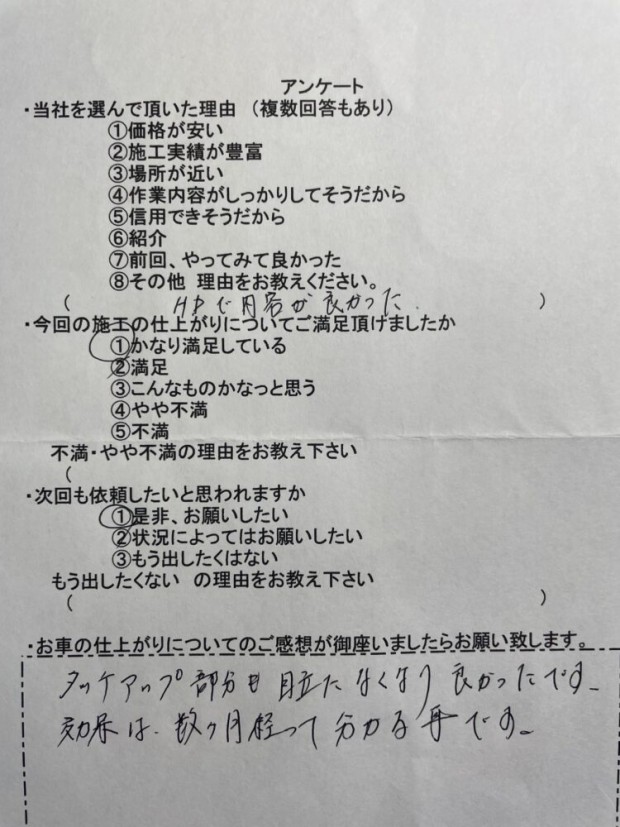 アンケート
・当社を選んで頂いた理由 (複数回答もあり)
①価格が安い
②施工実績が豊富
③場所が近い
④作業内容がしっかりしてそうだから
⑤信用できそうだから
⑥紹介
⑦前回、やってみて良かった
⑧その他 理由をお教えください。
( HPで内容が良かった. )
・今回の施工の仕上がりについてご満足頂けましたか
①かなり満足している
②満足
③こんなものかなっと思う
④やや不満
⑤不満
不満・やや不満の理由をお教え下さい
(
・次回も依頼したいと思われますか
①是非、お願いしたい
②状況によってはお願いしたい
③もう出したくはない
もう出したくない の理由をお教え下さい
( )
・お車の仕上がりについてのご感想が御座いましたらお願い致します。
タッチアップ部分も目立たなくなり良かったです。
効果は、数ヶ月経って分かる事です。